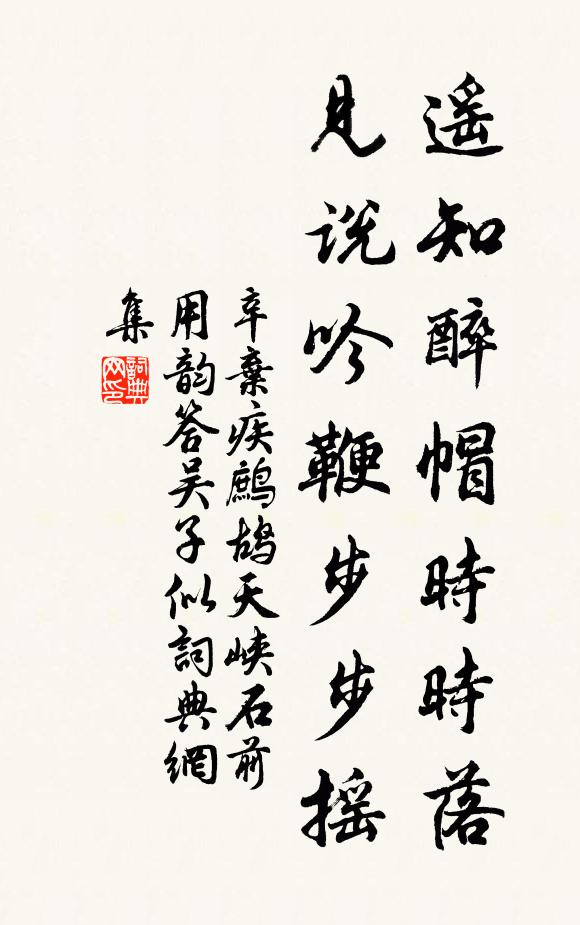 遥知醉帽時時落
見説吟鞭步步摇
辛棄疾鷓鴣天峽石前
用韵答吴子似詞典網
集
詞典
网印